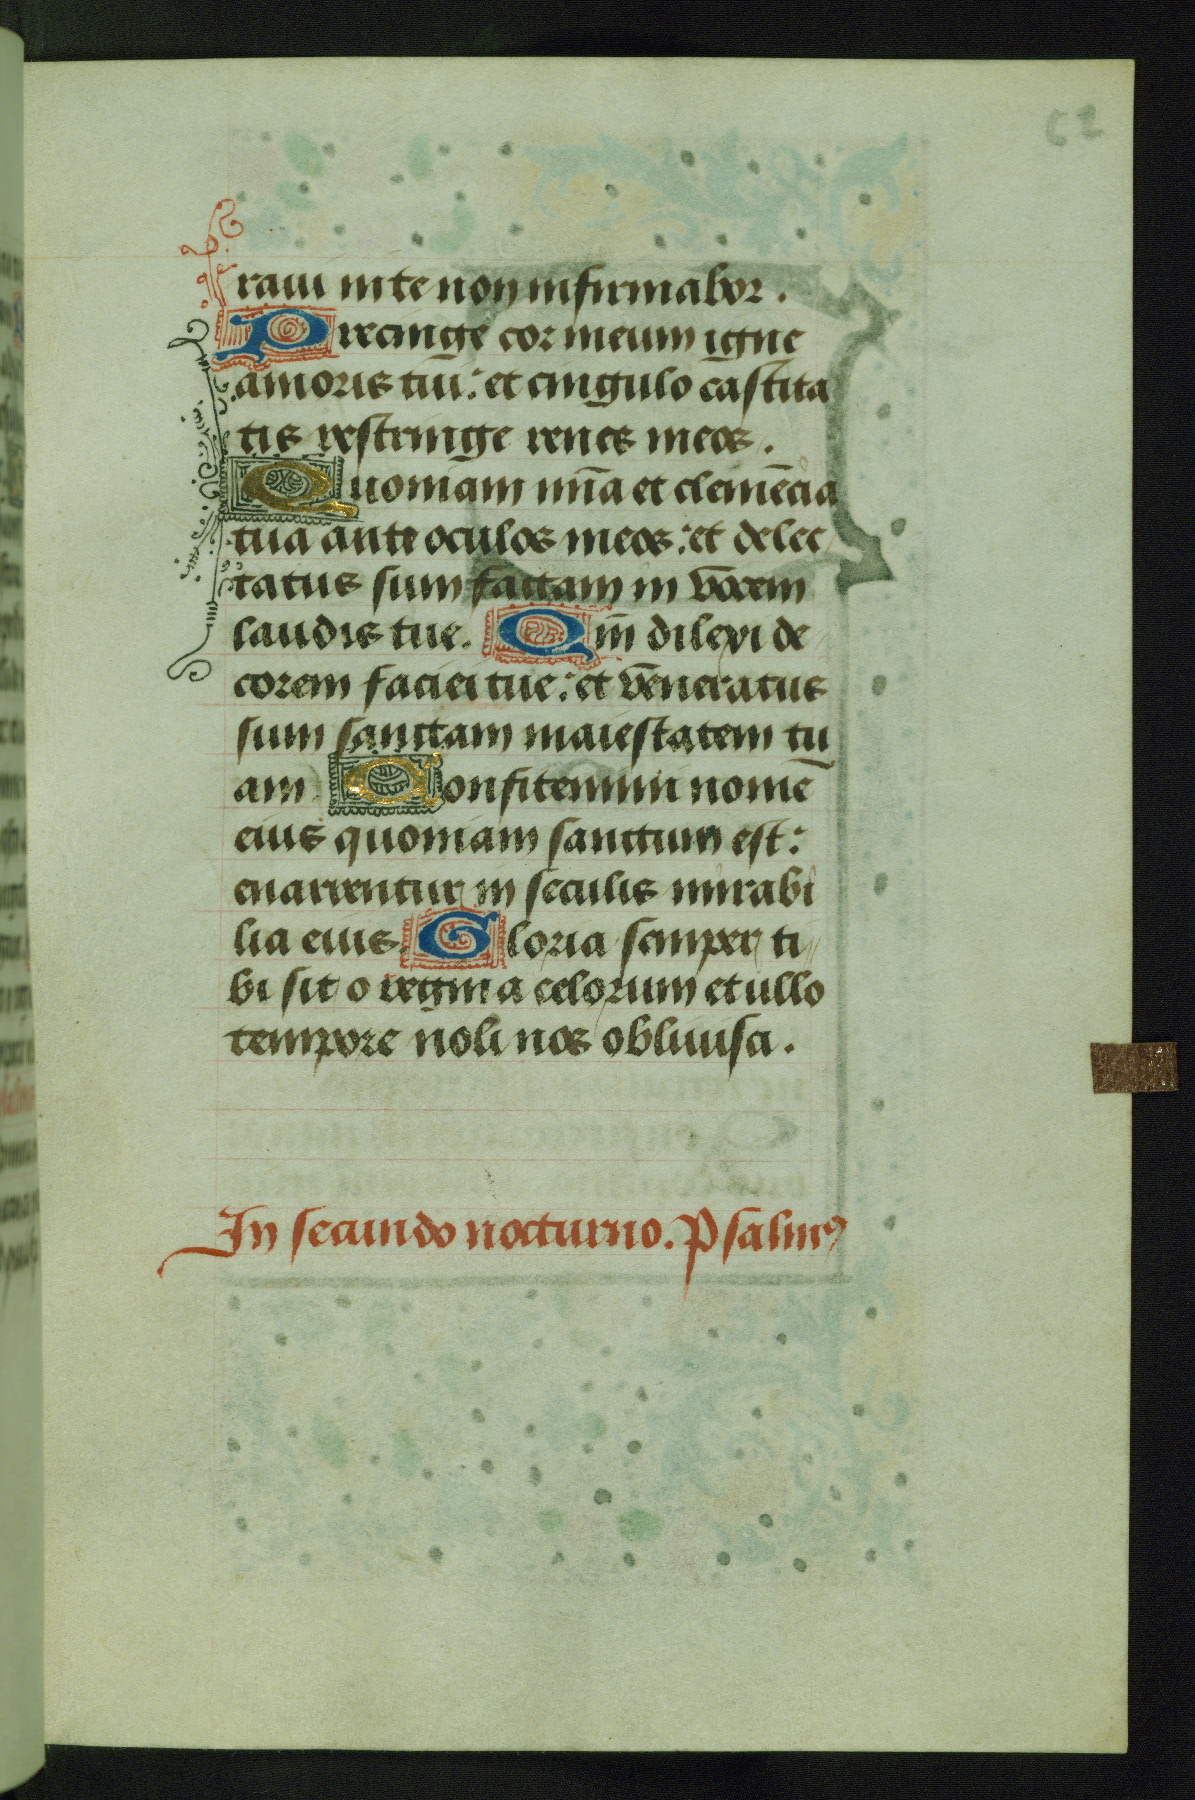 62
raui in te non infirmabor.
Precinge cor meum igne
amoris tui: et cingulo castita
tis restringe renes meos.
Quoniam mīa et clemēcia
tua ante oculos meos: et delec
tatus sum factam in vocem
laudis tue. Qm̄ dilexi de
corem faciei tue: et veneratus
sum sanctam maiestatem tu
am Confitemini nomē
eius quoniam sanctum est:
enarrentur in seculis mirabi
lia eius. Gloria semper ti
bi sit o regina celorum et ullo
tempore noli nos obliuisci.
In secundo nocturno. Psalmꝰ